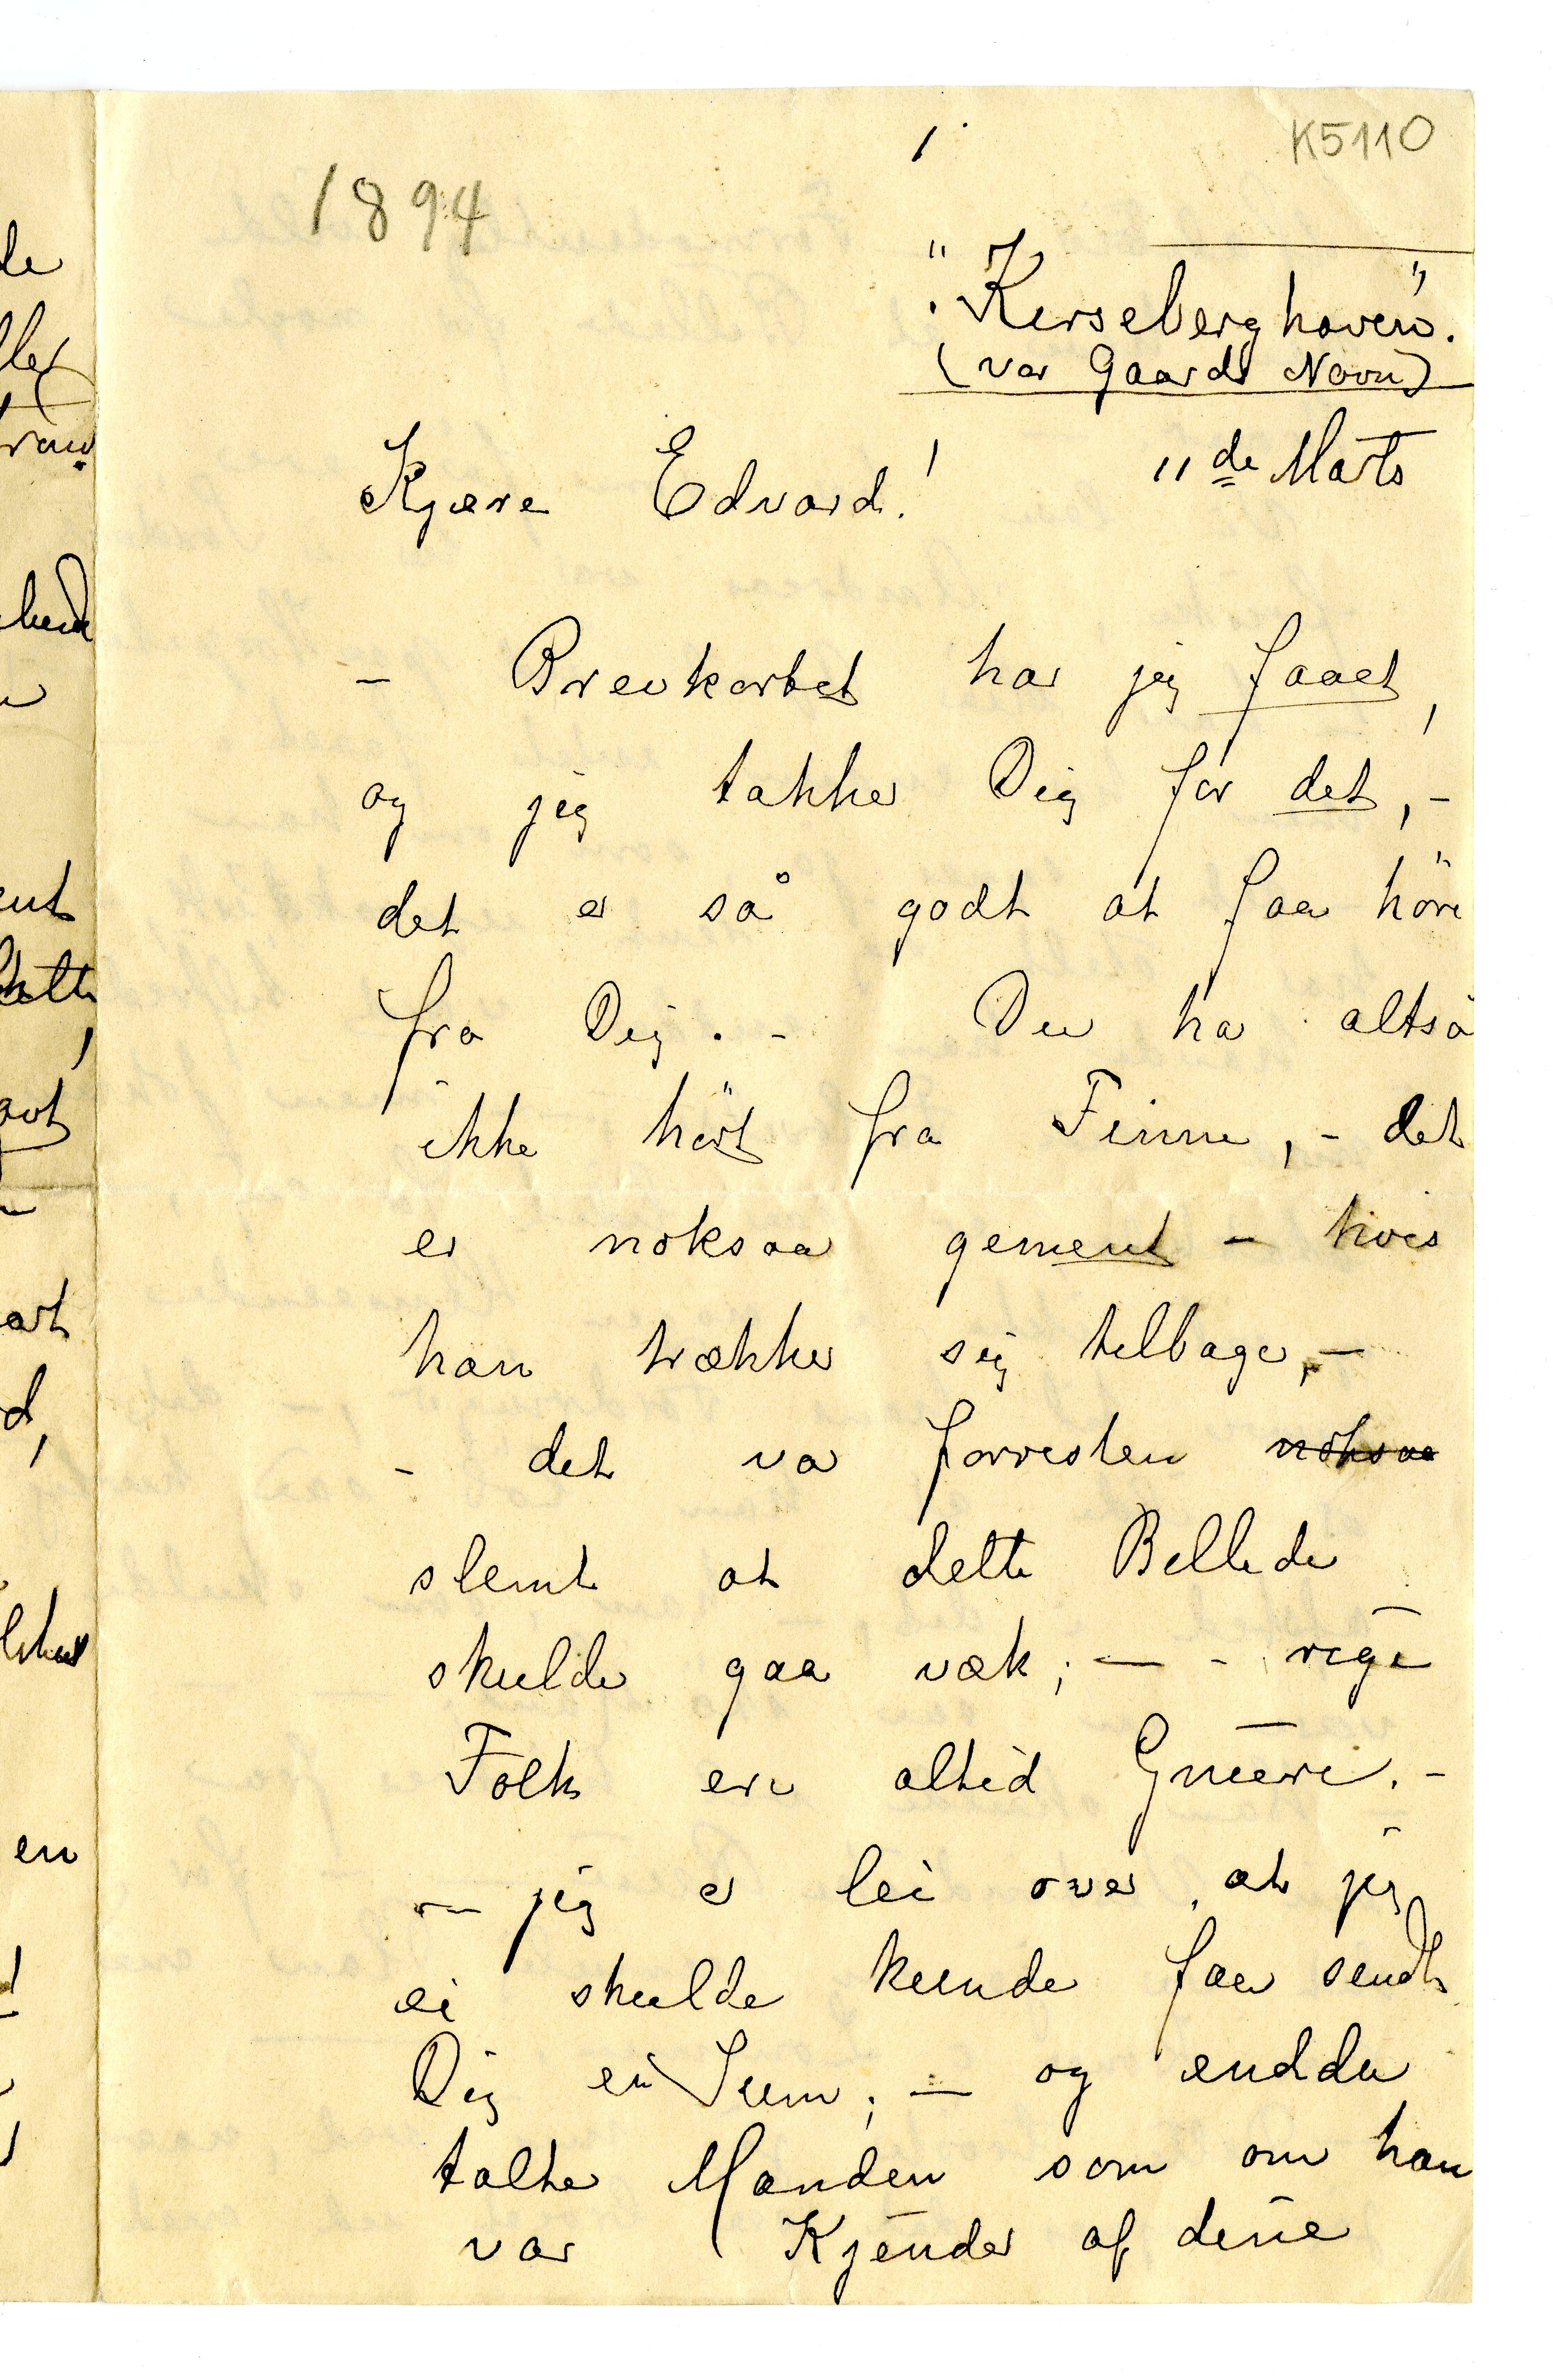 1
K5110
1894
"Kirseberghaven".
(vor Gaards Navn)
11de Marts
Kjære Edvard!
– Brevkortet har jeg faaet,
og jeg takker Dig for det, –
det er så godt at faa høre
fra Dig. – Du ha altså
ikke hört fra Finne, – det
er noksaa gement – hvis
han trækker sig tilbage, –
– det va forresten noksaa
slemt at dette Billede
skulde gaa væk; – – rige
Folk ere altid Gniere. –
– jeg er lei over at jeg
ei skulde kunde faa sendt
Dig en Sum; – og endda
talte Manden som om han
var Kjender af dine